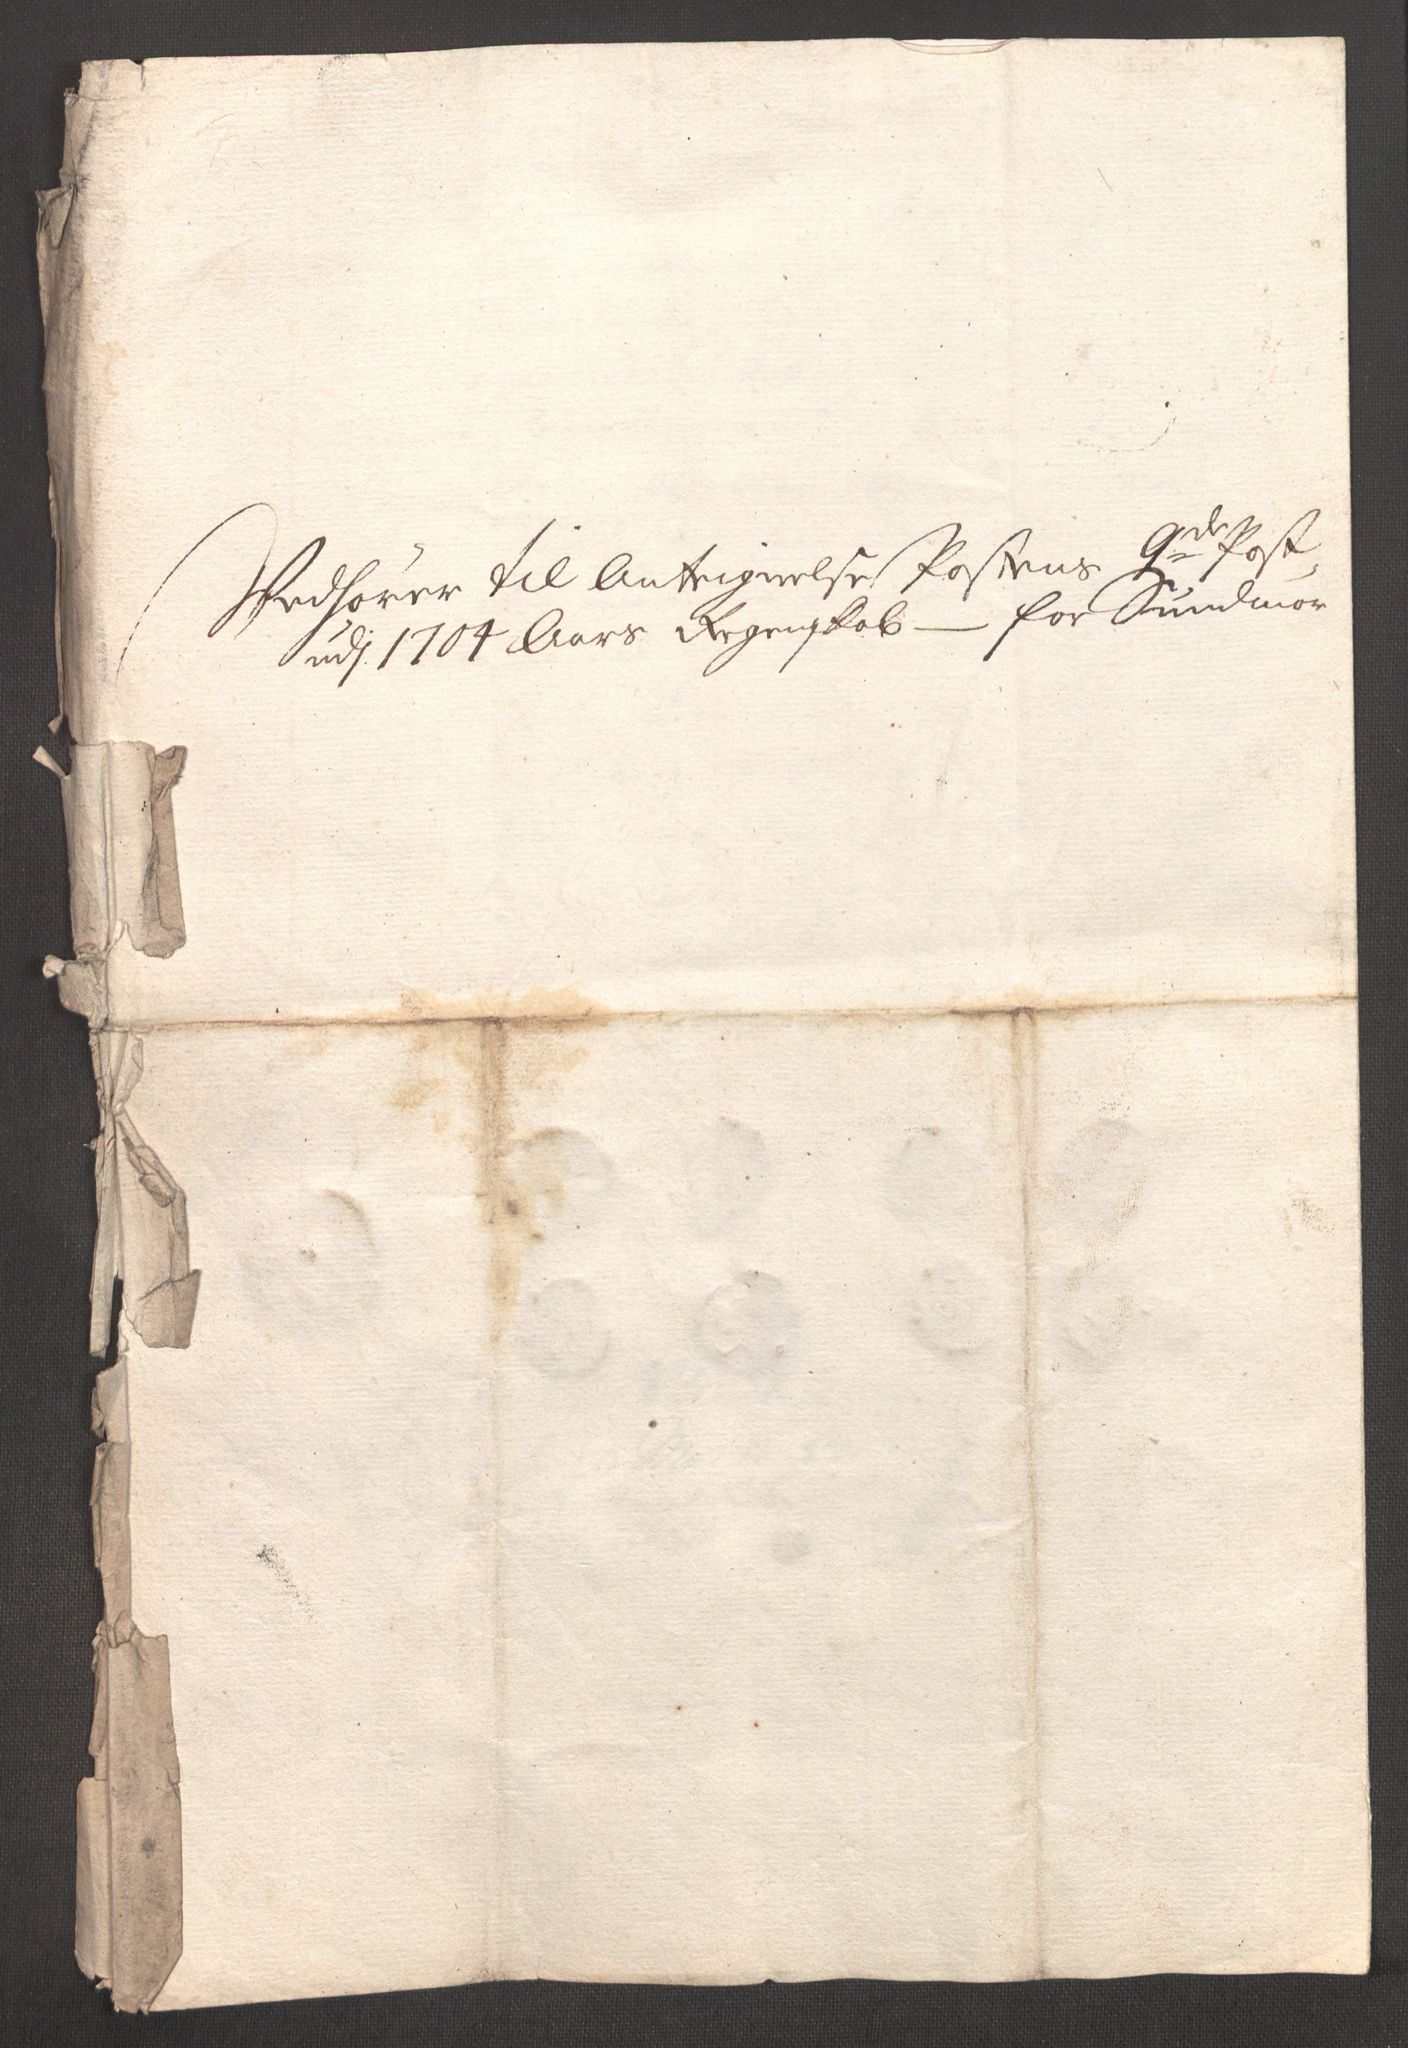 Vedhører til Anteignelse Postens 9de Post,
udj 1704 Aars Regenskab — for Sundmør